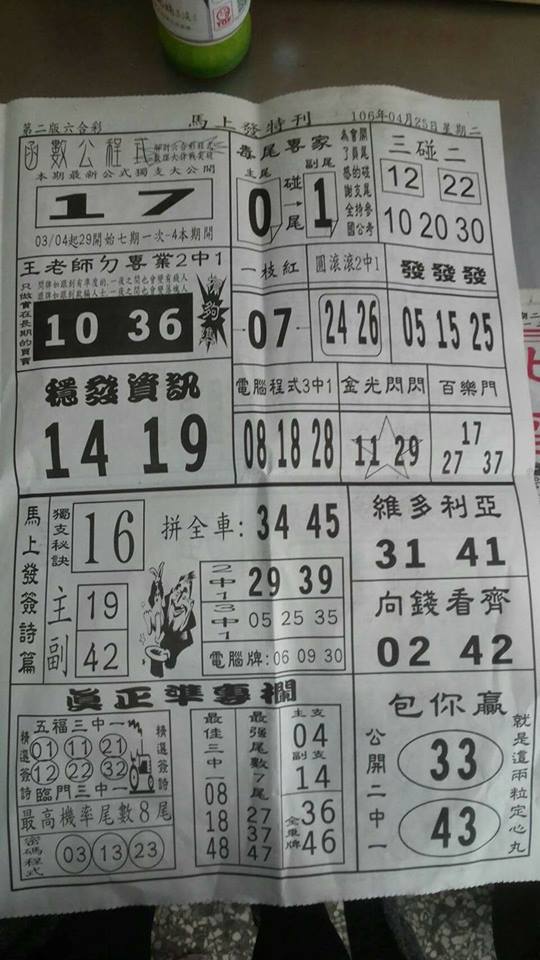 第二版六合彩
馬上發特刊
106年04月25日星期二
函數公程式
本期最新公式獨支大公開
17
03/04起29開始七期一次-4本期開
毒尾專家
主尾
副尾
0
碰→尾
1
三碰二
12 22
10 20 30
王老師ㄉ專業2中1
10 36
一枝紅
07
圓滾滾2中1
24 26
發發發
05 15 25
穩發資訊
14 19
電腦程式3中1
08 18 28
金光閃閃
11 29
百樂門
17
27 37
馬上發簽詩篇
獨支秘訣
16
主
19
副
42
拼全車:34 45
2中1
29 39
3中1
05 25 35
電腦牌:06 09 30
維多利亞
31 41
向錢看齊
02 42
真正準專欄
五福三中一
精選簽詩
01 11 21
12 22 32
臨門三中一
精選簽詩
最高機率尾數8尾
密碼程式
03 13 23
最佳三中一
08
18
48
最强尾數7尾
27
37
47
主支
04
副支
14
全車牌
36
46
包你贏
公開二中一
33
43
就是這兩粒定心丸